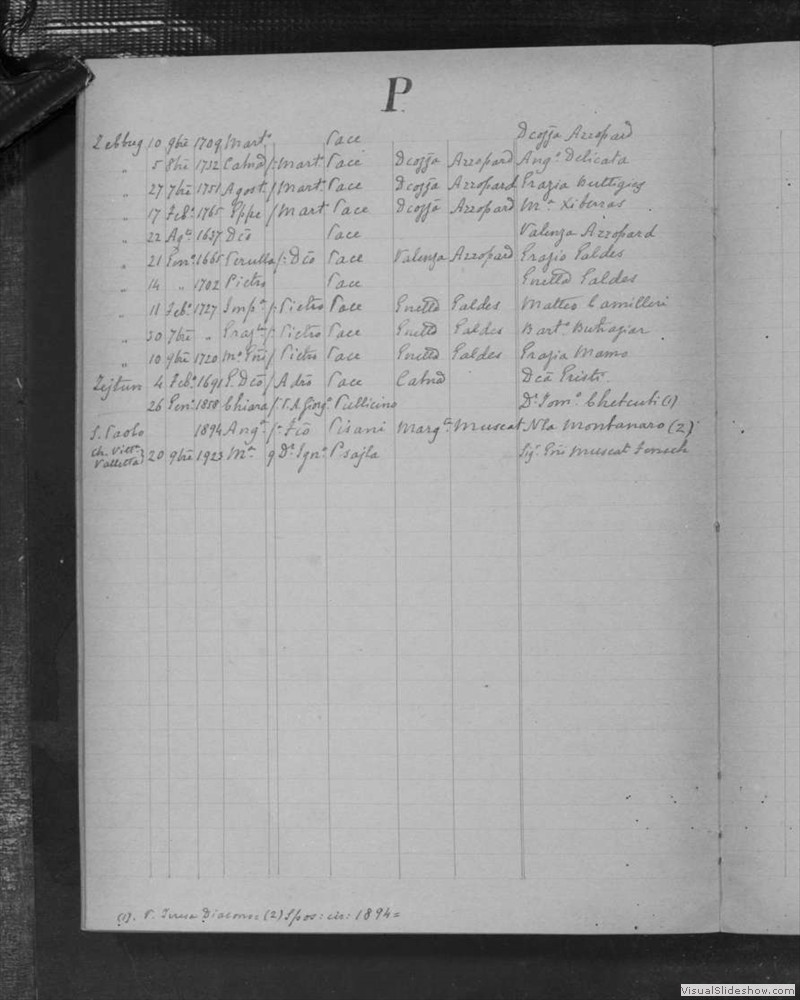 P.
Zebbug 10 9bre 1709 Mart° Pace Dcojja Azzopard
" 5 8bre 1732 Catnd /: Mart° Pace Dcojja Azzopard Ang° Delicata
" 27 7bre 1751 Agost° /: Mart° Pace Dcojja Azzopard Grazia Buttigieg
" 17 Feb° 1765 Gppe / Mart° Pace Dcojja Azzopard Mª Xiberras
" 22 Ag° 1637 Dco Pace Valenza Azzopard
" 21 Gen° 1665 /: Dco Pace Valenza Azzopard Grazio Galdes
" 14 " 1702 Pietro Pace Galdes
" 11 Feb° 1727 /: Pietro Pace Galdes Matteo Camilleri
" 30 7bre " /: Pietro Pace Galdes Bart° Buttigiar
" 10 9bre 1720 / Pietro Pace Galdes Grazia Mamo
Zejtun 4 Feb° 1691 / Pace Catnd
26 Gen° 1858 Chiara Pullicino Chetcuti (1)
S. Paolo 1894 Ang° Pisani Marg° Muscat N'la Montanaro (2)
Ch. Vitt° Valletta } 20 9bre 1923 Mª q Dr Ign° Psajla Sig° Muscat Fenech
(1). V. Teresa Diacono: (2) Spos: cir: 1894=
VisualSlideshow.com